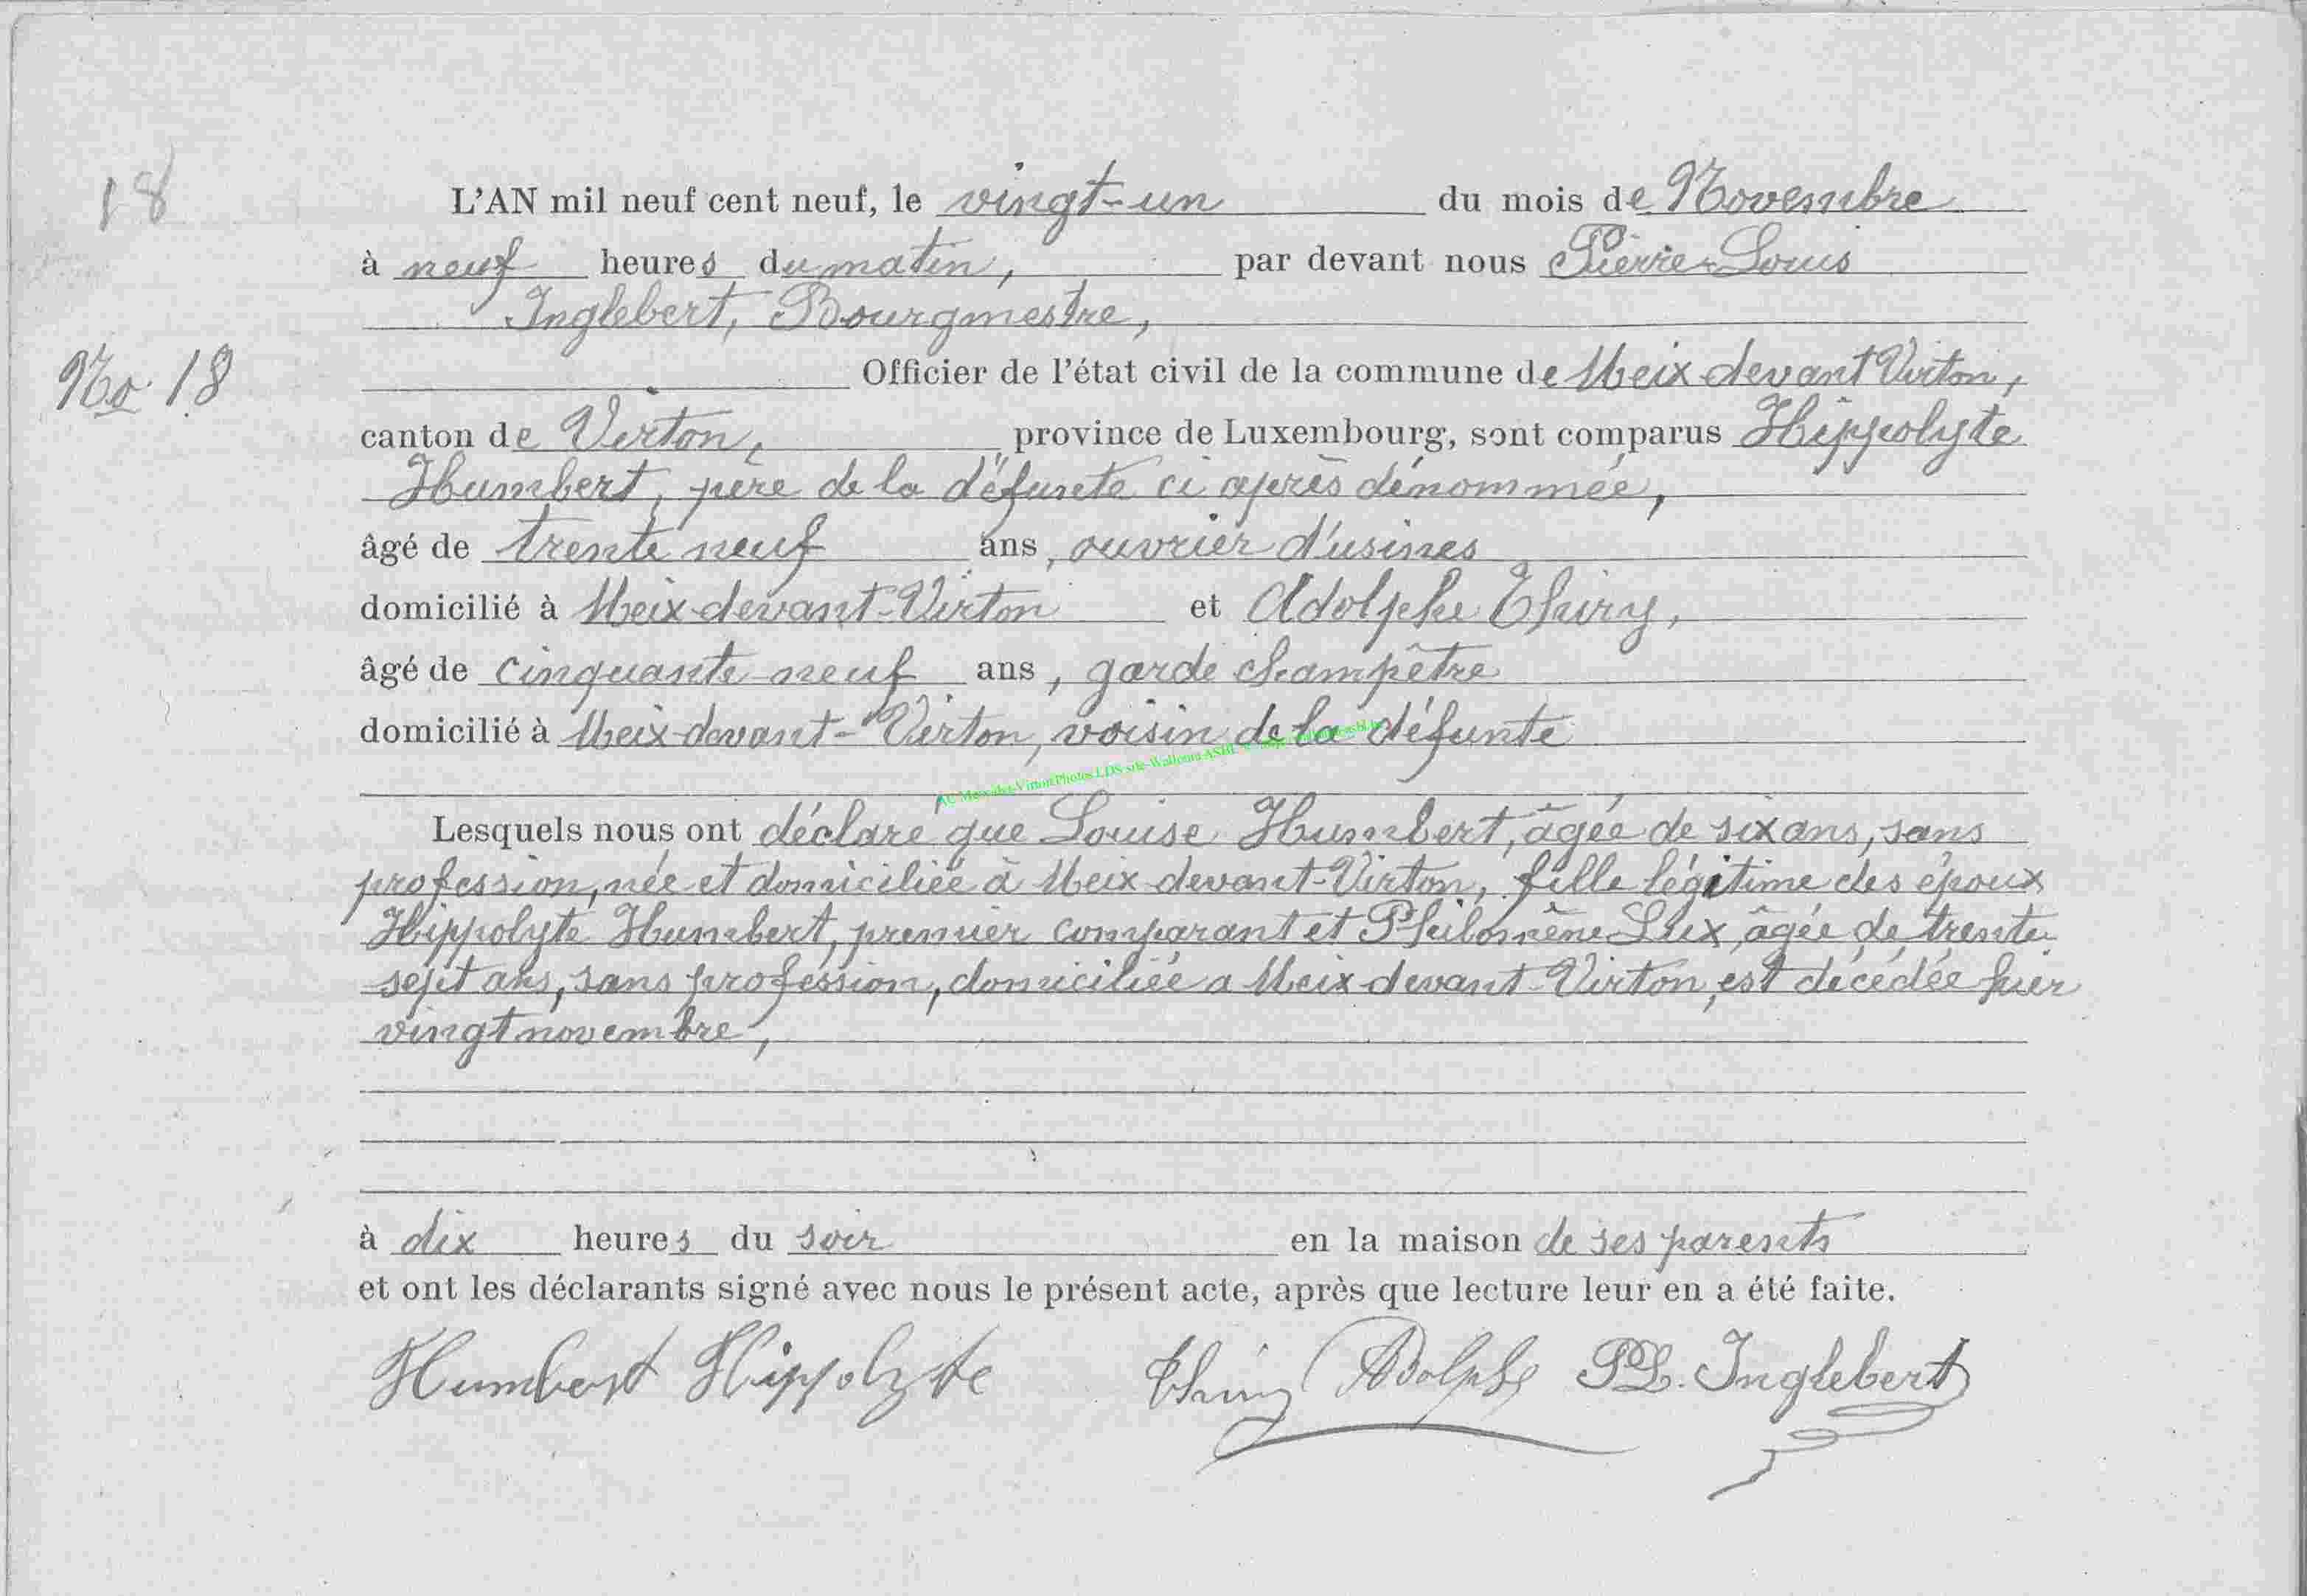 18
L'AN mil neuf cent neuf, le vingt-un du mois de Novembre
à neuf heures du matin, par devant nous Pierre-Louis
Inglebert, Bourgmestre,
No 18
Officier de l'état civil de la commune de Meix devant Virton,
canton de Virton, province de Luxembourg, sont comparus Hippolyte
Humbert, père de la défunte ci après dénommée,
âgé de trente neuf ans, ouvrier d'usines
domicilié à Meix-devant-Virton et Adolphe Thiry,
âgé de cinquante neuf ans, garde champêtre
domicilié à Meix-devant-Virton, voisin de la défunte
Lesquels nous ont déclaré que Louise Humbert, âgée de six ans, sans
profession, née et domiciliée à Meix devant-Virton, fille légitime des époux
Hippolyte Humbert, premier comparant et Philomène Lux, âgée de trente
sept ans, sans profession, domiciliée a Meix-devant-Virton, est décédée hier
vingt novembre,
à dix heures du soir en la maison de ses parents
et ont les déclarants signé avec nous le présent acte, après que lecture leur en a été faite.
Humbert Hippolyte Thiry Adolphe PL. Inglebert